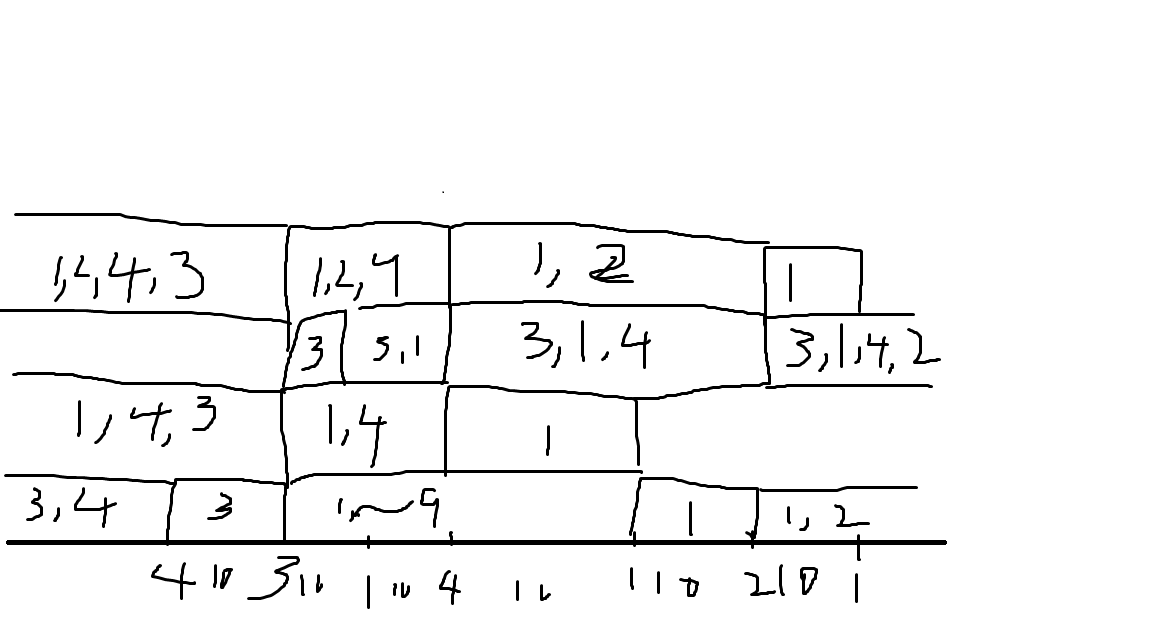 1,2,4,3 1,2,4 1,2 1
3 3,1 3,1,4 3,1,4,2
1,4,3 1,4 1
3,4 3 1,~9 1 1,2
4 10 3 10 1 10 4 10 1 10 2 10 1